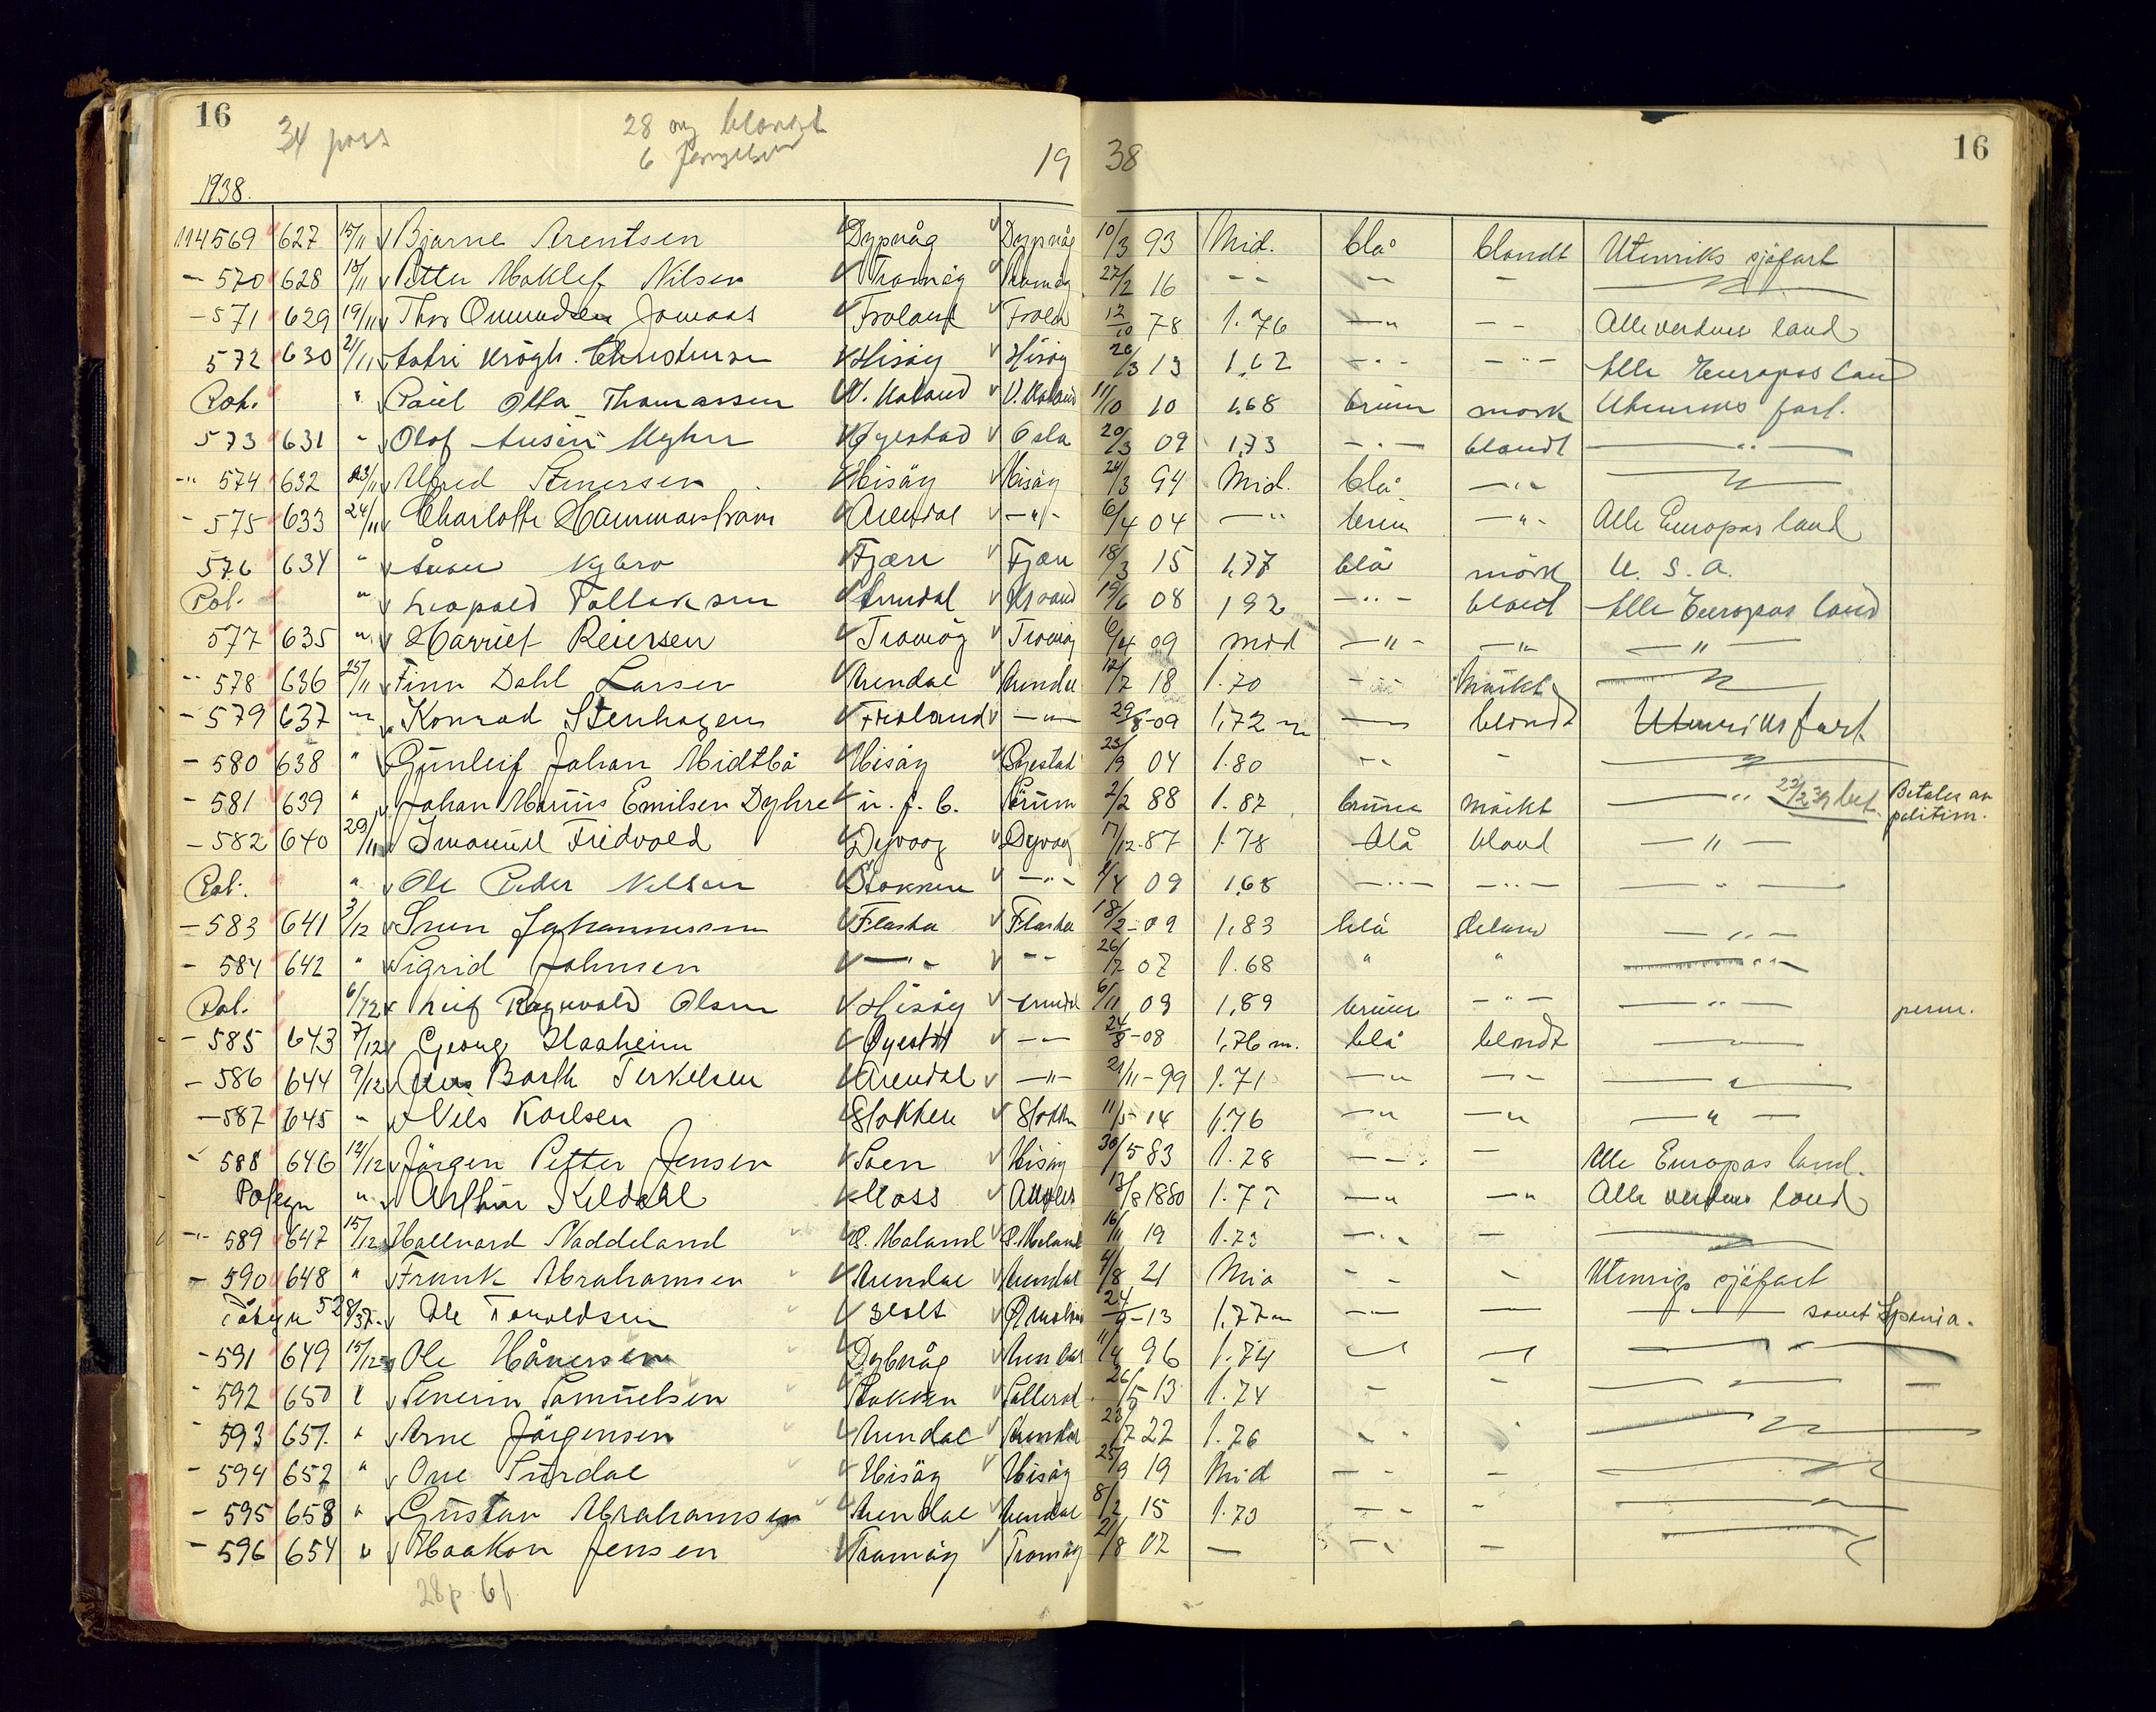 16
34 pass
28 ny blankt
6
19 38
16
1938.
114569 627 15/11 Bjarne Arentsen Dypvåg Dypvåg 10/3 93 Mid. blå blondt Utenriks sjöfart
- 570 628 18/11 Petter Nilsen Tromöy Tromöy 27/2 16 - - - -
- 571 629 19/11 Thor Omundsen Jomaas Froland Frola 12/10 78 1.76 - " - - Alle verdens land
572 630 21/11 Astri Krogh. Christensen Hisöy Hisöy 28/3 13 1,62 - " - - " - Alle Europas land
Pol. " Paul Otto Thomassen V. Moland V. Moland 11/10 10 1,68 brune mörk Utenriks fart.
573 631 " Olof Myhre Öyestad Oslo 20/3 09 1,73 - " - blondt - " -
- " 574 632 23/11 Alfred Stenersen Hisöy Hisöy 24/3 94 Mid. blå - " -
- 575 633 24/11 Charlotte Hammarstrøm Arendal - " - 6/4 04 - " brun - " - Alle Europas land
576 634 " Nybro Fjære Fjære 18/3 15 1,77 blå mörk U. S. A.
Pol. " Leopold Tallaksen Arendal Krsand 19/6 08 1,92 - " - blond Alle Europas land
577 635 " Harriet Reiersen Tromöy Tromöy 6/4 09 mid - " - - " - " -
- " 578 636 25/11 Finn Dahl Larsen Arendal Arendal 12/7 18 1.70 - " - Mörkt
- 579 637 - " - Konrad Stenhagen Froland - " - 29/8-09 1,72 m - " blondt Utenriks fart
- 580 638 " Gunleif Johan Midtbö Hisöy Öyestad 23/9 04 1.80 - - -
- 581 639 " Johan Marius Emilsen Dyhre u. f. b. 2/2 88 1.87 brune mörkt - " 22/2 39 bet. Betales av politim.
- 582 640 29/11 Imanuel Fredvold Dyvaag Dyvaag 17/12-87 1.78 blå blond - " -
Pol. " Ole Peder Nilsen Stokken - " - 09 1,68 - " - - " - - " -
- 583 641 3/12 Johannessen Flosta Flosta 18/2-09 1,83 blå blond - " -
- 584 642 " Sigrid Johnsen - " - - - 26/7 07 1.68 " " - " -
Pol. 6/12 Leif Ragnvald Olsen Hisöy Arendal 6/11 09 1,89 brune - " - - " - perm.
- 585 643 7/12 Georg Haaheim Öyestad - - 24/8-08 1,76 m. blå blondt
- 586 644 9/12 Barth Terkelsen Arendal - " - 21/11-99 1.71 - " - -
- 587 645 " Nils Karlsen Stokken Stokken 11/5 14 1.76 - " - " - " -
588 646 12/12 Jörgen Petter Jensen Hisöy 30/5 83 1.78 - - - Alle Europas land.
Polfgn " Arthur Kildahl Moss 13/8 1880 - " - " Alle verdens land
- " 589 647 15/12 Hallvard Naddeland Ö. Moland Ö. Moland 16/11 19 1.73 - " -
- 590 648 " Frank Abrahamsen Arendal Arendal 4/8 21 Mid - - - Utenrigs sjöfart
528/37 Ole Toraldsen Holt 24/9-13 1,77 m - - samt Spania.
- 591 649 15/12 Ole Håversen Dybvåg Arendal 96 1.74
592 650 " Severin Samuelsen Stokken 26/5 13 1.74 - - -
593 651. " Arne Jörgensen Arendal Arendal 23/7 22 1.76 "
- 594 652 " Ove Surdal Hisöy Hisöy 25/9 19 Mid - - -
- 595 658 " Gustav Abrahamsen Arendal Arendal 8/2 15 1.73 - - -
- 596 654 " Haakon Jensen Tromöy Tromöy 21/8 02 - - -
28p. 6f